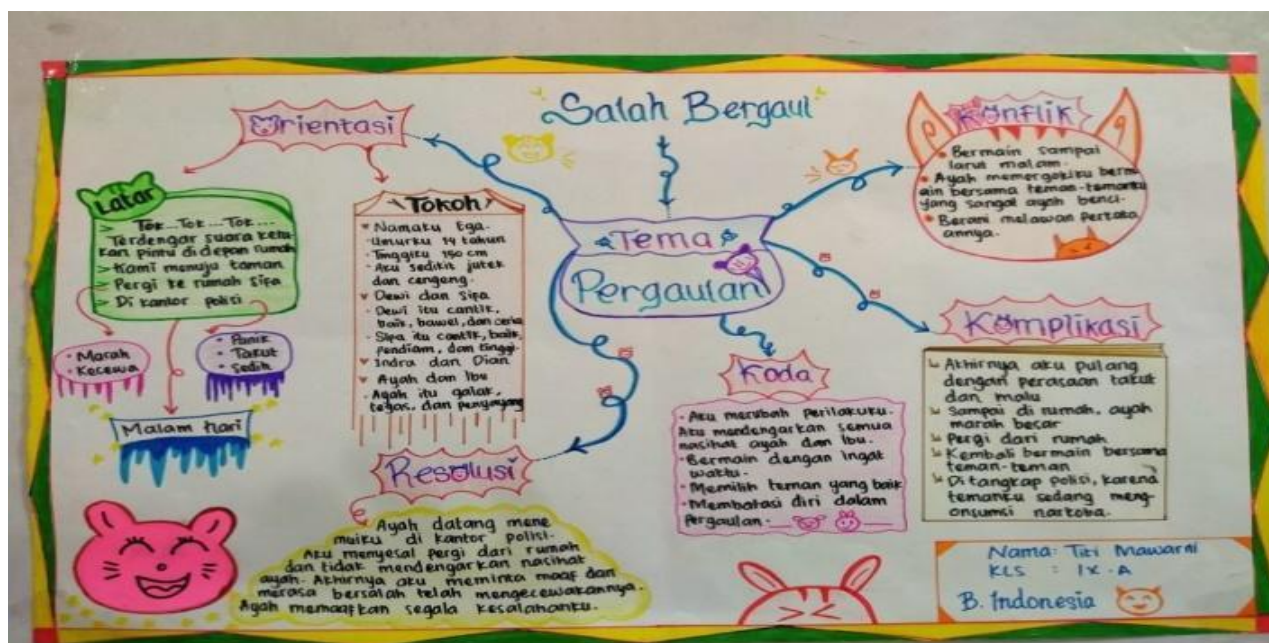 Salah Bergaul
Orientasi
Latar
> Tok...Tok...Tok...
Terdengar suara ketu-
kan pintu di depan rumah
> Kami menuju taman
> Pergi ke rumah Sifa
> Di kantor polisi
• Marah
• Kecewa
• Panik
• Takut
• Sedih
Malam hari
Tokoh
Namaku Ega.
- Umurku 14 tahun
- Tinggiku 150 cm
- Aku sedikit jutek
dan cengeng.
Dewi dan Sifa
Dewi itu cantik,
baik, bawel, dan ceria
Sifa itu cantik, baik,
pendiam, dan tinggi.
Indra dan Dian
Ayah dan Ibu
- Ayah itu galak,
tegas, dan penyayang
Tema
Pergaulan
Konflik
• Bermain sampai
larut malam.
• Ayah memergokiku berma
ain bersama teman-temanku
yang sangat ayah benci.
• Berani melawan perkata
annya.
Komplikasi
Akhirnya aku pulang
dengan perasaan takut
dan malu
Sampai di rumah, ayah
marah besar
Pergi dari rumah
Kembali bermain bersama
teman-teman
Ditangkap polisi, karena
temanku sedang meng-
onsumsi narkoba.
Koda
- Aku merubah perilakuku.
Aku mendengarkan semua
nasihat ayah dan Ibu.
- Bermain dengan ingat
waktu.
- Memilih teman yang baik
- Membatasi diri dalam
Pergaulan.
Resolusi
Ayah datang mene
muiku di kantor polisi.
Aku menyesal pergi dari rumah
dan tidak mendengarkan nasihat
ayah. Akhirnya aku meminta maaf dan
merasa bersalah telah mengecewakannya.
Ayah memaafkan segala kesalahanku.
Nama: Titi Mawarni
KLS : IX.A
B. Indonesia